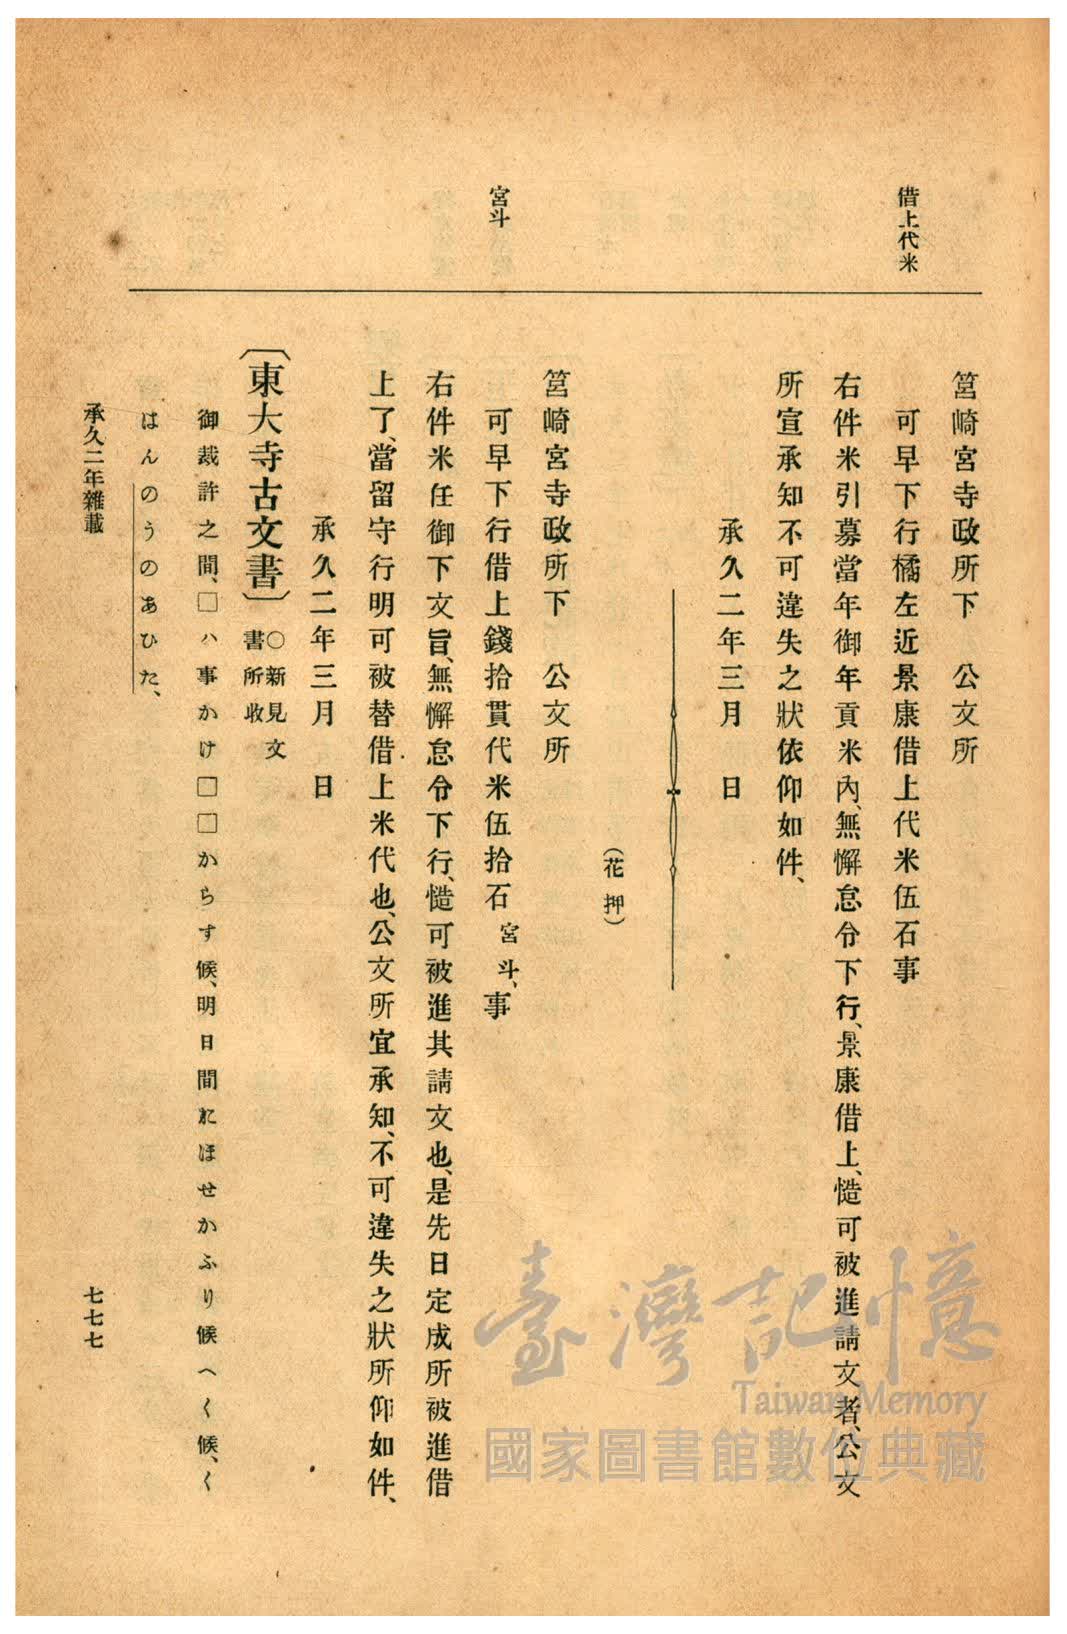 借上代米
宮斗
筥崎宮寺政所下　公文所
可早下行橘左近景康借上代米伍石事
右件米引募當年御年貢米內、無懈怠令下行、景康借上、慥可被進請文者、公文
所宣承知不可違失之狀依仰如件、
承久二年三月　日
（花押）
筥崎宮寺政所下　公文所
可早下行借上錢拾貫代米伍拾石宮斗、事
右件米任御下文旨、無懈怠令下行、慥可被進其請文也、是先日定成所被進借
上了、當留守行明可被替借上米代也、公文所宜承知、不可違失之狀所仰如件、
承久二年三月　日
〔東大寺古文書〕○新見文書所收
御裁許之間、□ハ事かけ□□からす候、明日間ニほせかふり候へく候、く
はんのうのあひた、
承久二年雜載
七七七
臺灣記憶
Taiwan Memory
國家圖書館數位典藏